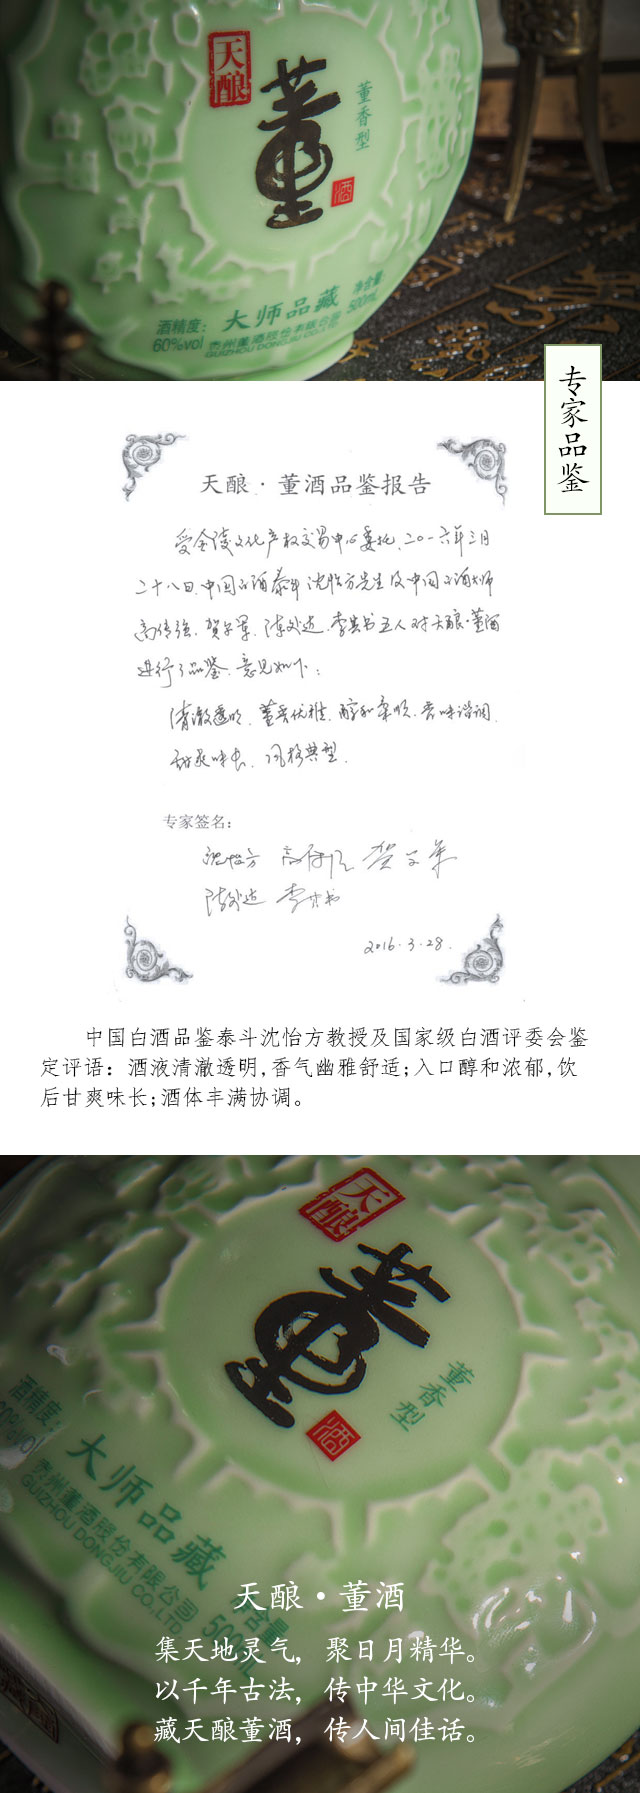 天酿
董
董香型
酒
大师品藏
净含量:
500mL
酒精度:
60%vol
贵州董酒股份有限公司
GUIZHOU DONGJIU CO.,LTD
专家品鉴
天酿·董酒品鉴报告
受金陵文化产权交易中心委托,二〇一六年三月
二十八日,中国白酒泰斗沈怡方先生及中国白酒大师
高传强、贺尔军、陈处达、李其书五人对天酿·董酒
进行了品鉴,意见如下:
清澈透明、董香优雅、醇和柔顺、香味谐调、
甜爽味长、风格典型.
专家签名:
沈怡方
陈处达 李其书
2016.3.28.
中国白酒品鉴泰斗沈怡方教授及国家级白酒评委会鉴
定评语:酒液清澈透明,香气幽雅舒适;入口醇和浓郁,饮
后甘爽味长;酒体丰满协调。
天酿
董
董香型
酒
酒精度:
60%vol
大师品藏
贵州董酒股份有限公司
GUIZHOU DONGJIU CO.,LTD
净含量:
500mL
天酿·董酒
集天地灵气，聚日月精华。
以千年古法，传中华文化。
藏天酿董酒，传人间佳话。